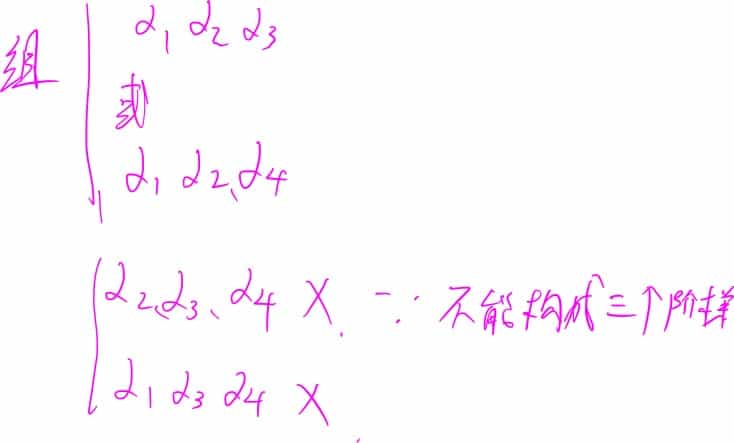 α₁ α₂ α₃
组
或
α₁ α₂、α₄
α₂、α₃、α₄ X. ∵ 不能构成三个阶梯
α₁ α₃ α₄ X.